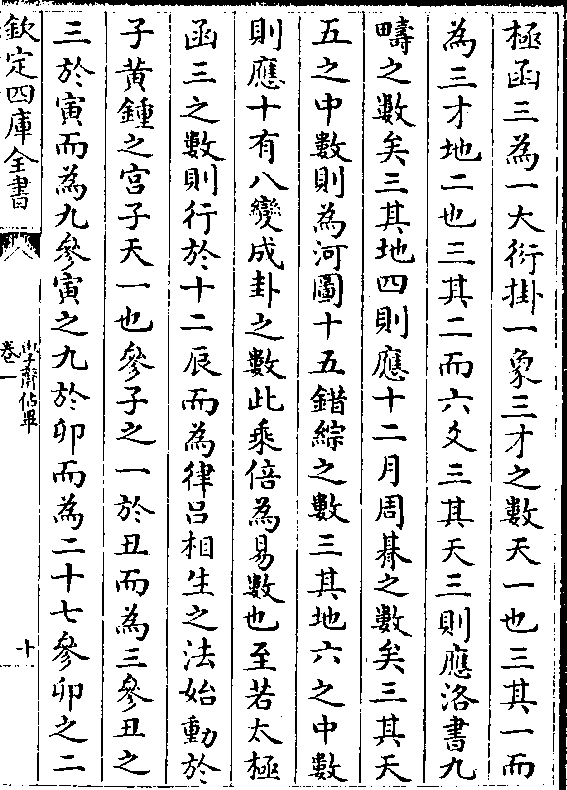 極函三為一大衍掛一象三才之數天一也三其一而
為三才地二也三其二而六爻三其天三則應洛書九
疇之數矣三其地四則應十二月周朞之數矣三其天
五之中數則為河圖十五錯綜之數三其地六之中數
則應十有八變成卦之數此乘倍為易數也至若太極
函三之數則行於十二辰而為律呂相生之法始動於
子黃鍾之宮子天一也參子之一於丑而為三參丑之
三於寅而為九參寅之九於卯而為二十七參卯之二
欽定四庫全書
學齋佔畢
卷一
十